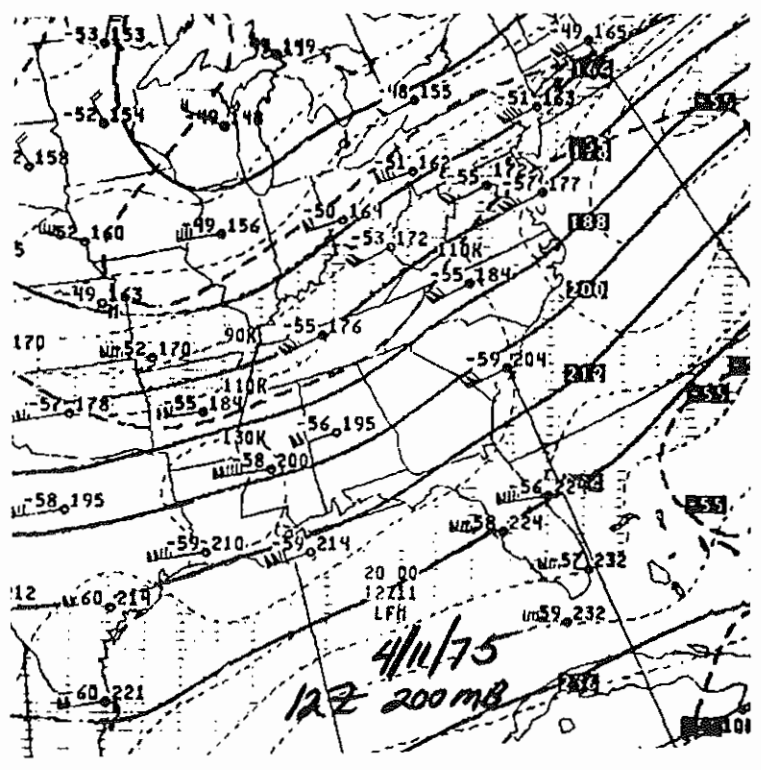 -53 153
149
-49 165
-52 154
-49 148
48 155
-51 163
158
-51 162
-55 172
-57 177
52 160
-49 156
-50 164
-53 172
110K
188
-55 184
5
-49 163
200
170
52 170
90K
-55 176
-59 204
212
110K
-57 178
-55 184
-55
130K
-56 195
58 200
-56
-58 195
58 224
-55
-59 210
-59 214
57 232
12
60 214
20 00
12Z11
LFM
59 232
4/11/75
60 221
12Z 200 MB